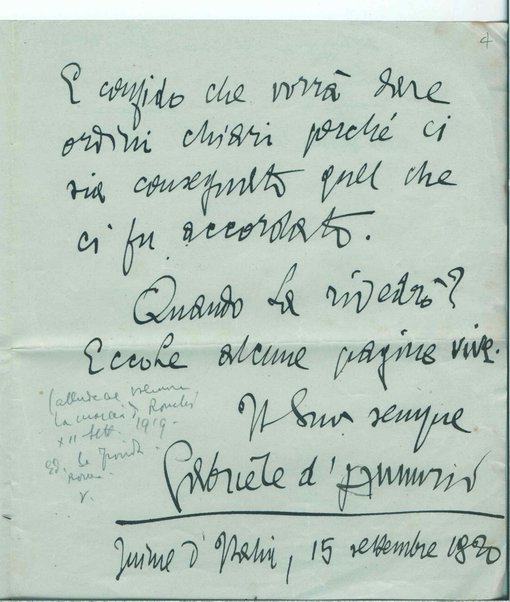 4
E confido che vorrà dare
ordini chiari perché ci
sia consegnato quel che
ci fu accordato.
Quando La rivedrò?
EccoLe alcune pagine vive.
Il Suo sempre
Gabriele d'Annunzio
Fiume d'Italia, 15 settembre 1920
(allude al volume
La marcia di Ronchi
XII Sett. 1919 -
ed. La Fionda
Roma